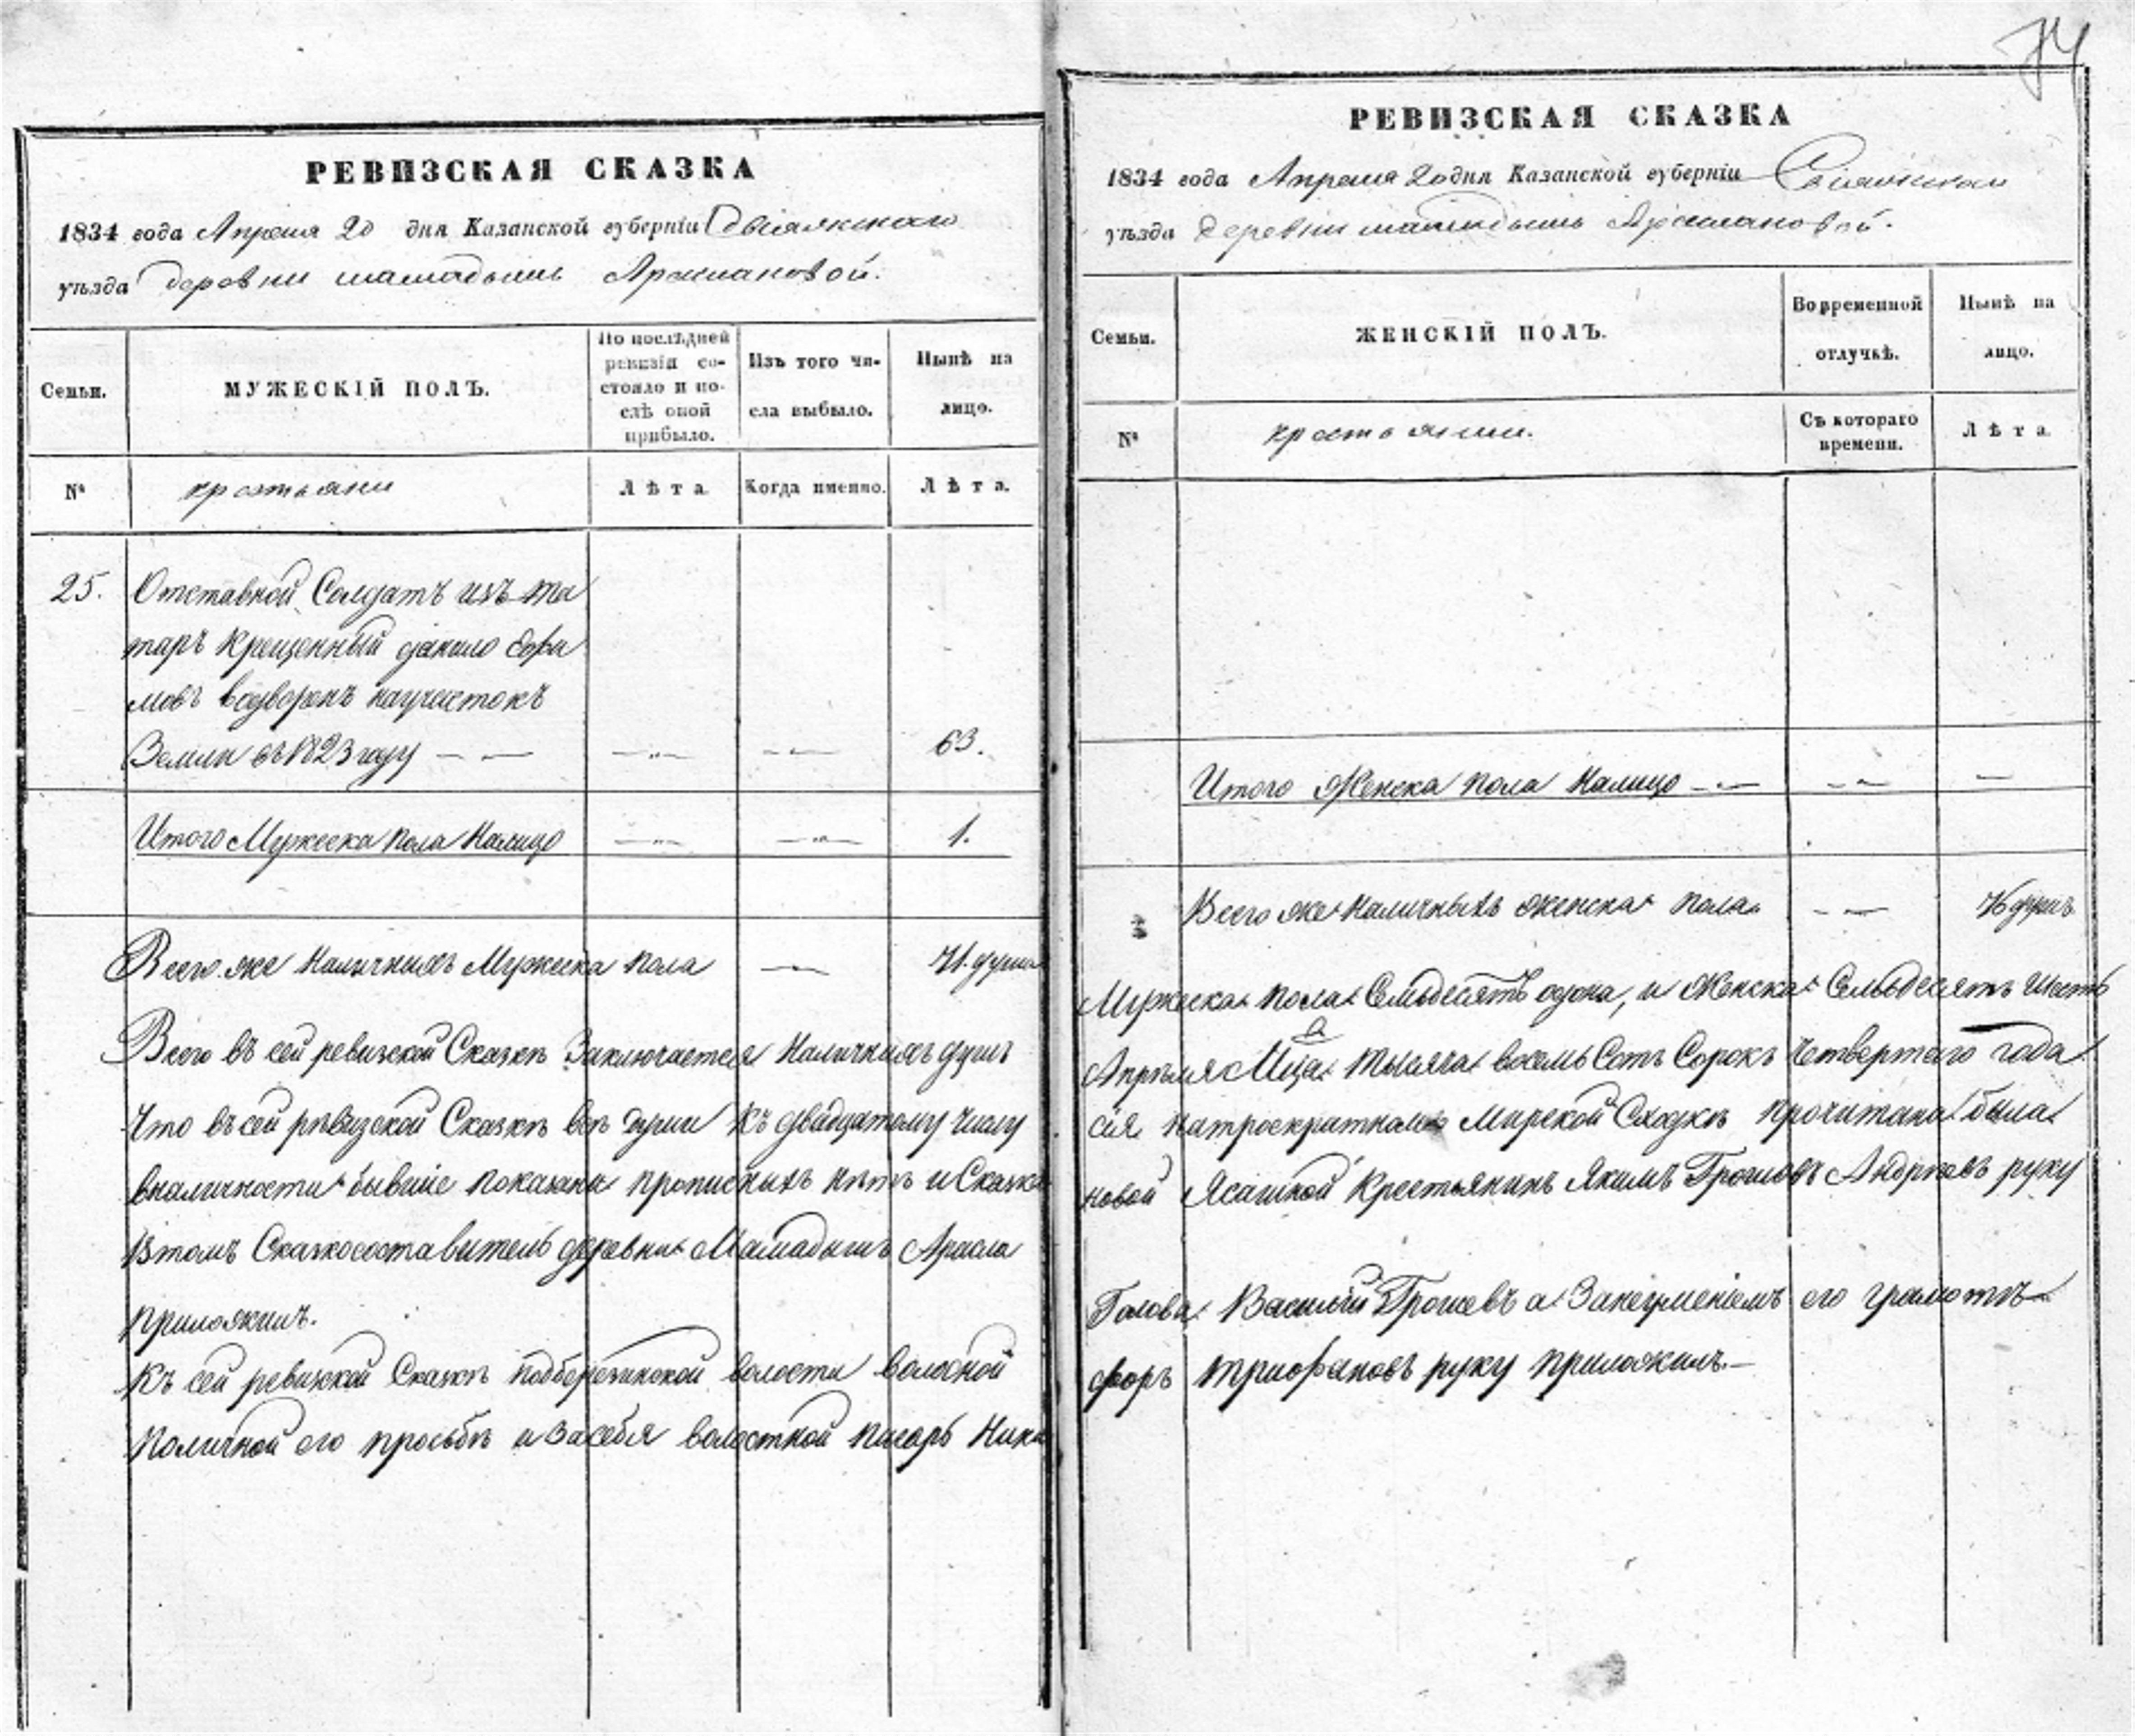 74
РЕВИЗСКАЯ СКАЗКА
1834 года Апреля 20 дня Казанской губерніи Свіяжскаго
уѣзда деревни мамадышъ Арслановой.
Семьи.
МУЖЕСКІЙ ПОЛЪ.
По послѣдней ревизіи со-
стояло и по-
слѣ оной
прибыло.
Изъ того чи-
сла выбыло.
Нынѣ на
лицо.
№
крестьяни
Лѣта
Когда именно.
Лѣта.
25. Отставной Солдатъ изъ та
таръ крещенный данило Ефи
мовъ водворенъ научастокъ
Земли въ 1823 году — — 63.
Итого Мужеска пола Налицо 1.
Всего же Наличныхъ Мужеска пола — 71. душа
Всего въ сей ревизской Сказкѣ Заключается Наличныхъ душъ
Что въ сей рѣвизской Сказкѣ всѣ души Къ двадцатому числу
вналичности бывшіе показаны прописныхъ нѣтъ и Сказка
Втомъ Сказкосоставитель деревни Мамадышъ Арсла
приложилъ.
Къ сей ревизской Сказкѣ подберезинской волости волосной
поличной его прозьбѣ и За себя волостной писарь Ники
РЕВИЗСКАЯ СКАЗКА
1834 года Апреля 20 дня Казанской губерніи Свіяжскаго
уѣзда деревни мамадышъ Арслановой.
Семьи.
ЖЕНСКІЙ ПОЛЪ.
Во временной
отлучкѣ.
Нынѣ на
лицо.
№
крестьянии.
Съ котораго
времени.
Лѣта
Итого Женска пола Налицо — — —
Всего же наличныхъ женска пола — 76 душъ
Мужеска пола Семьдесятъ одна, и Женска Семьдесятъ шесть
Апрѣля Мца тысяча восемь Сотъ Сорокъ Четвертаго года
сія натроекратномъ Мирской Сходкѣ прочитана была
новой Ясашной Крестьянинъ Якимъ Андрѣевъ руку
Голова Василій а Занеумѣніемъ его грамотѣ
форъ трифановъ руку приложилъ.—